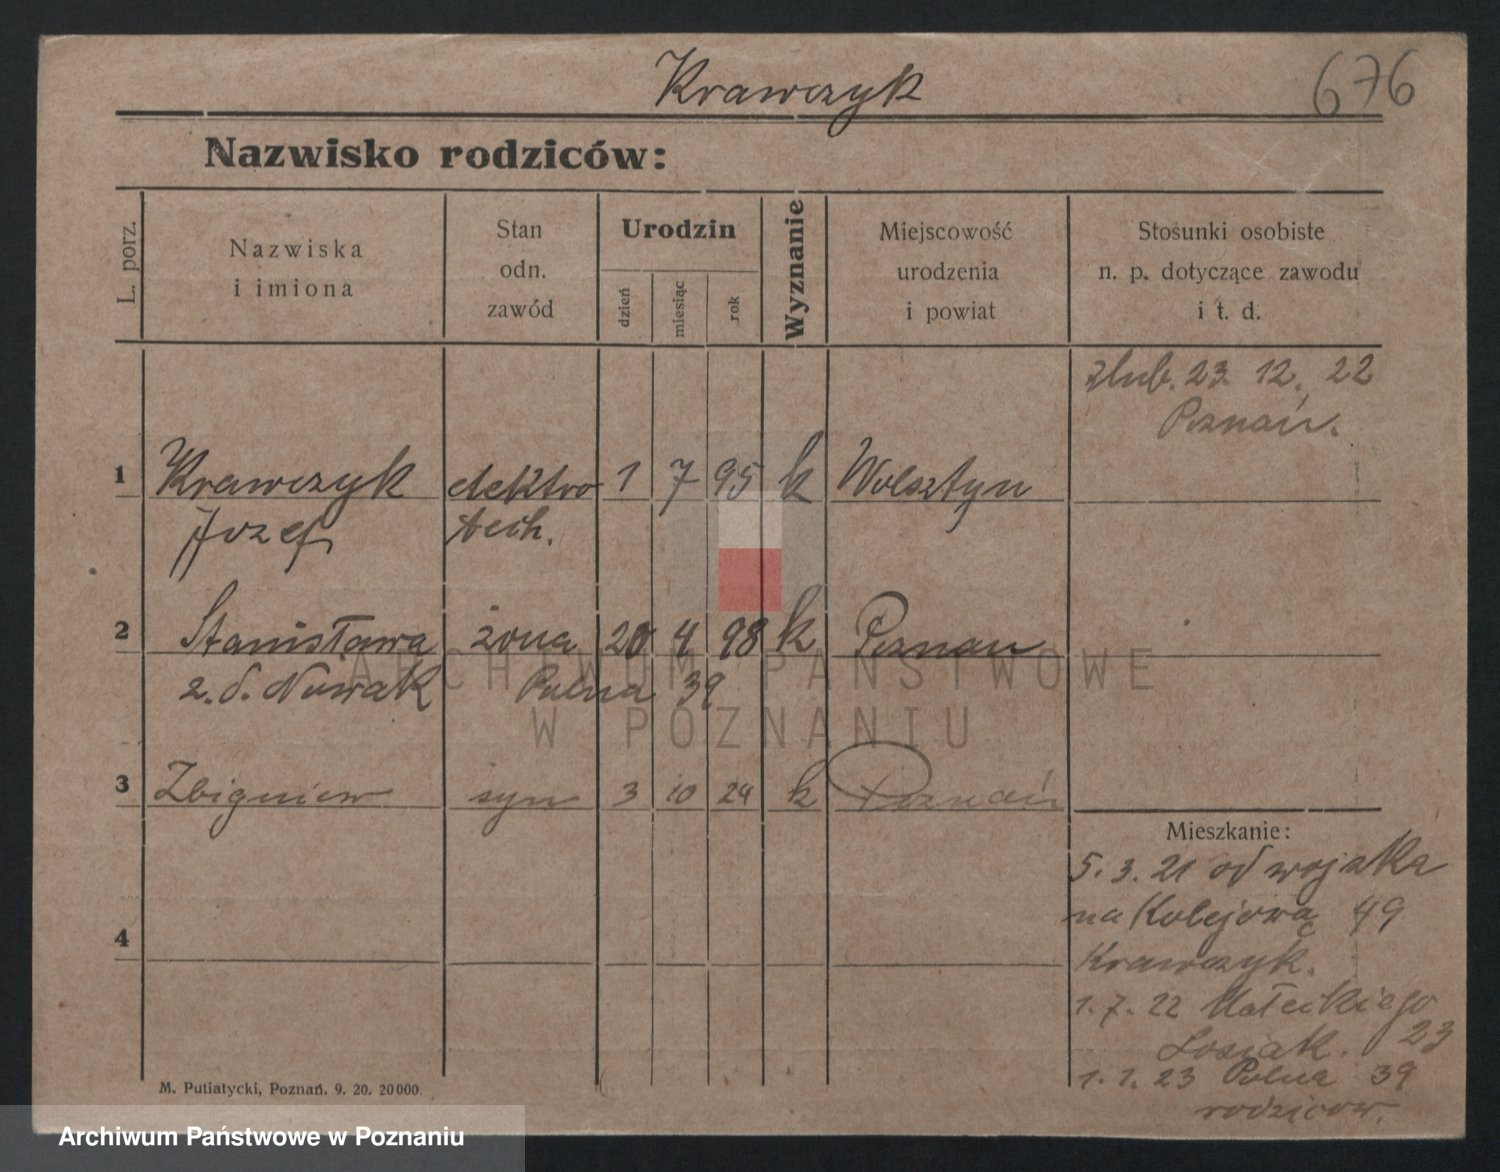 Krawczyk 676
Nazwisko rodziców:
L. porz.
Nazwiska
i imiona
Stan
odn.
zawód
Urodzin
dzień
miesiąc
rok
Wyznanie
Miejscowość
urodzenia
i powiat
Stosunki osobiste
n. p. dotyczące zawodu
i t. d.
23. 12. 22
Poznań.
1 Krawczyk elektro 1 7 95 k Wolsztyn
Józef tech.
2 Stanisława żona 20 4 98 k Poznań
z. d. Nowak Polna 39
ARCHIWUM PAŃSTWOWE
W POZNANIU
3 Zbigniew syn 3 10 24 k Poznań
Mieszkanie:
5. 3. 21 od wojska
na Kolejową 49
4
Krawczyk.
1. 7. 22 Małeckiego
Łosiak. 23
1. 1. 23 Polna 39
rodziców.
M. Putiatycki, Poznań. 9. 20. 20000.
Archiwum Państwowe w Poznaniu